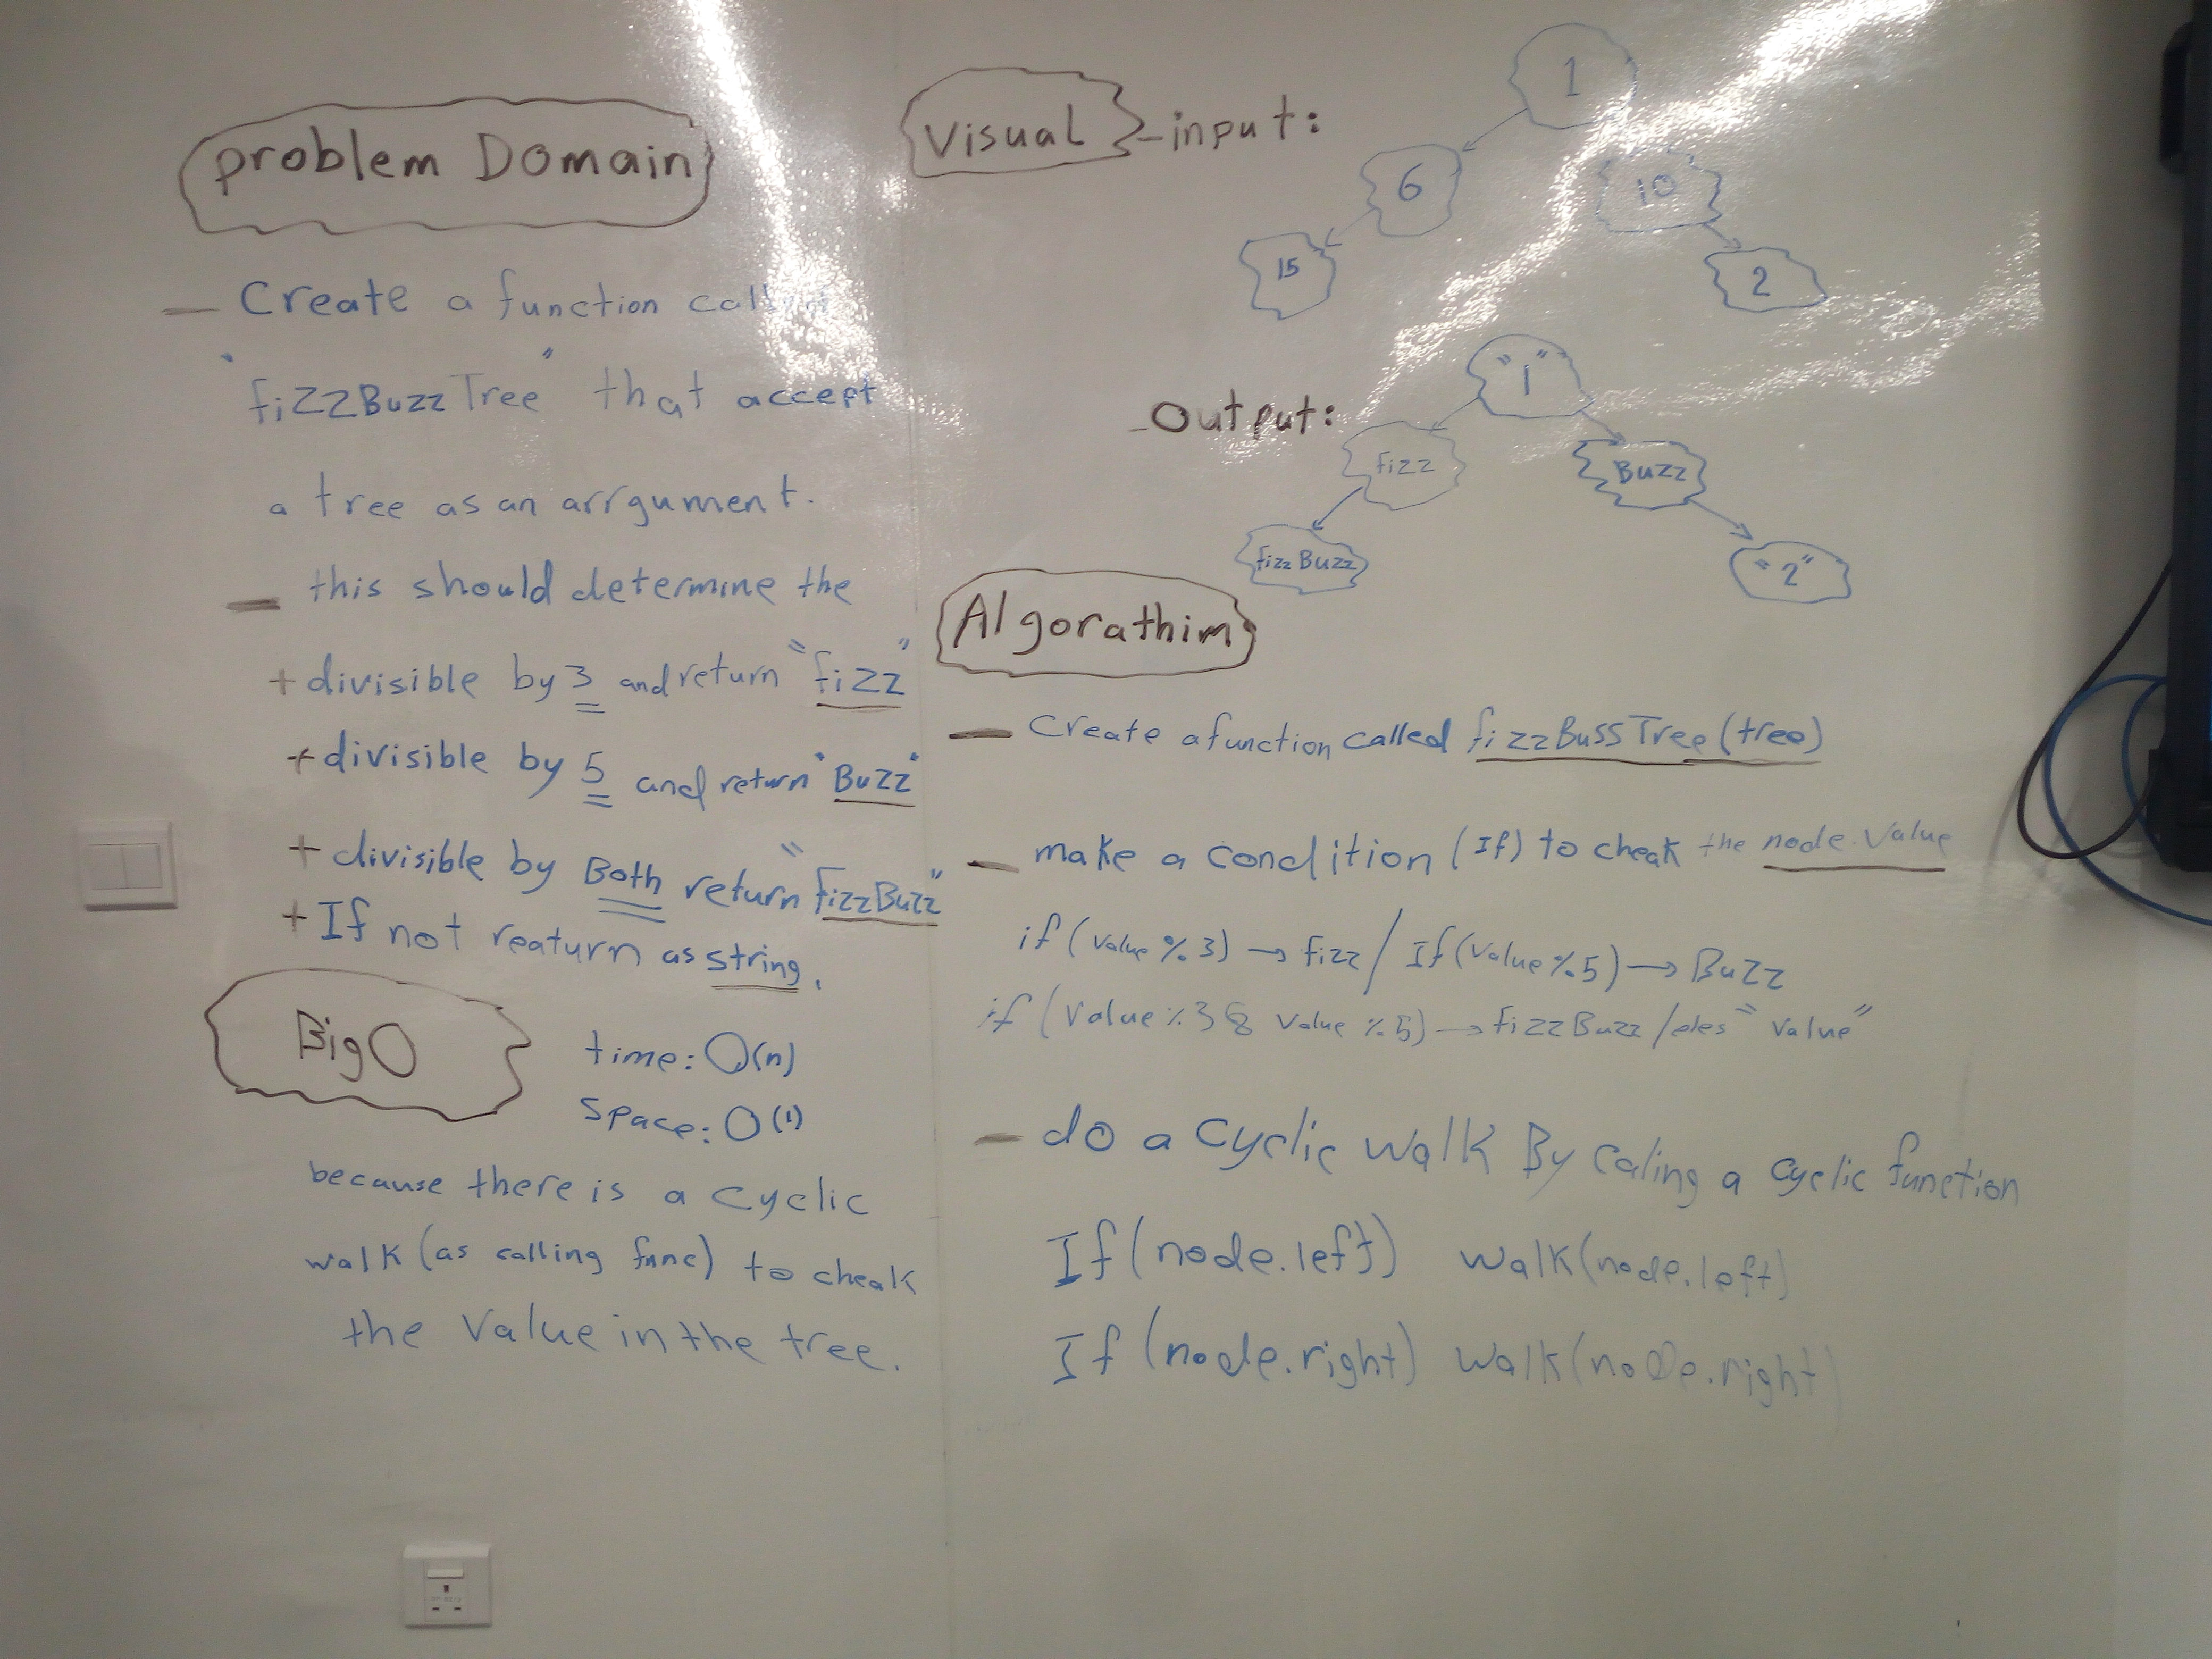 problem Domain
— Create a function
"fizzBuzzTree" that accept
a tree as an arrgument.
— this should determine the
+ divisible by 3 and return "fizz"
+ divisible by 5 and return "Buzz"
+ divisible by Both return "FizzBuzz"
+ If not reaturn as string.
Big O
time: O(n)
space: O(1)
because there is a cyclic
walk (as calling func) to cheak
the value in the tree.
Visual - input:
1
6
10
15
2
- Output:
"1"
fizz
Buzz
fizzBuzz
"2"
Algorathim
— Create a function called fizzBussTree(tree)
— make a condition (If) to cheak the node.value
if (value % 3) → fizz / If (value % 5) → Buzz
if (value % 3 & value % 5) → FizzBuzz / eles "value"
— do a cyclic walk By caling a cyclic function
If (node.left) walk(node.left)
If (node.right) walk(node.right)